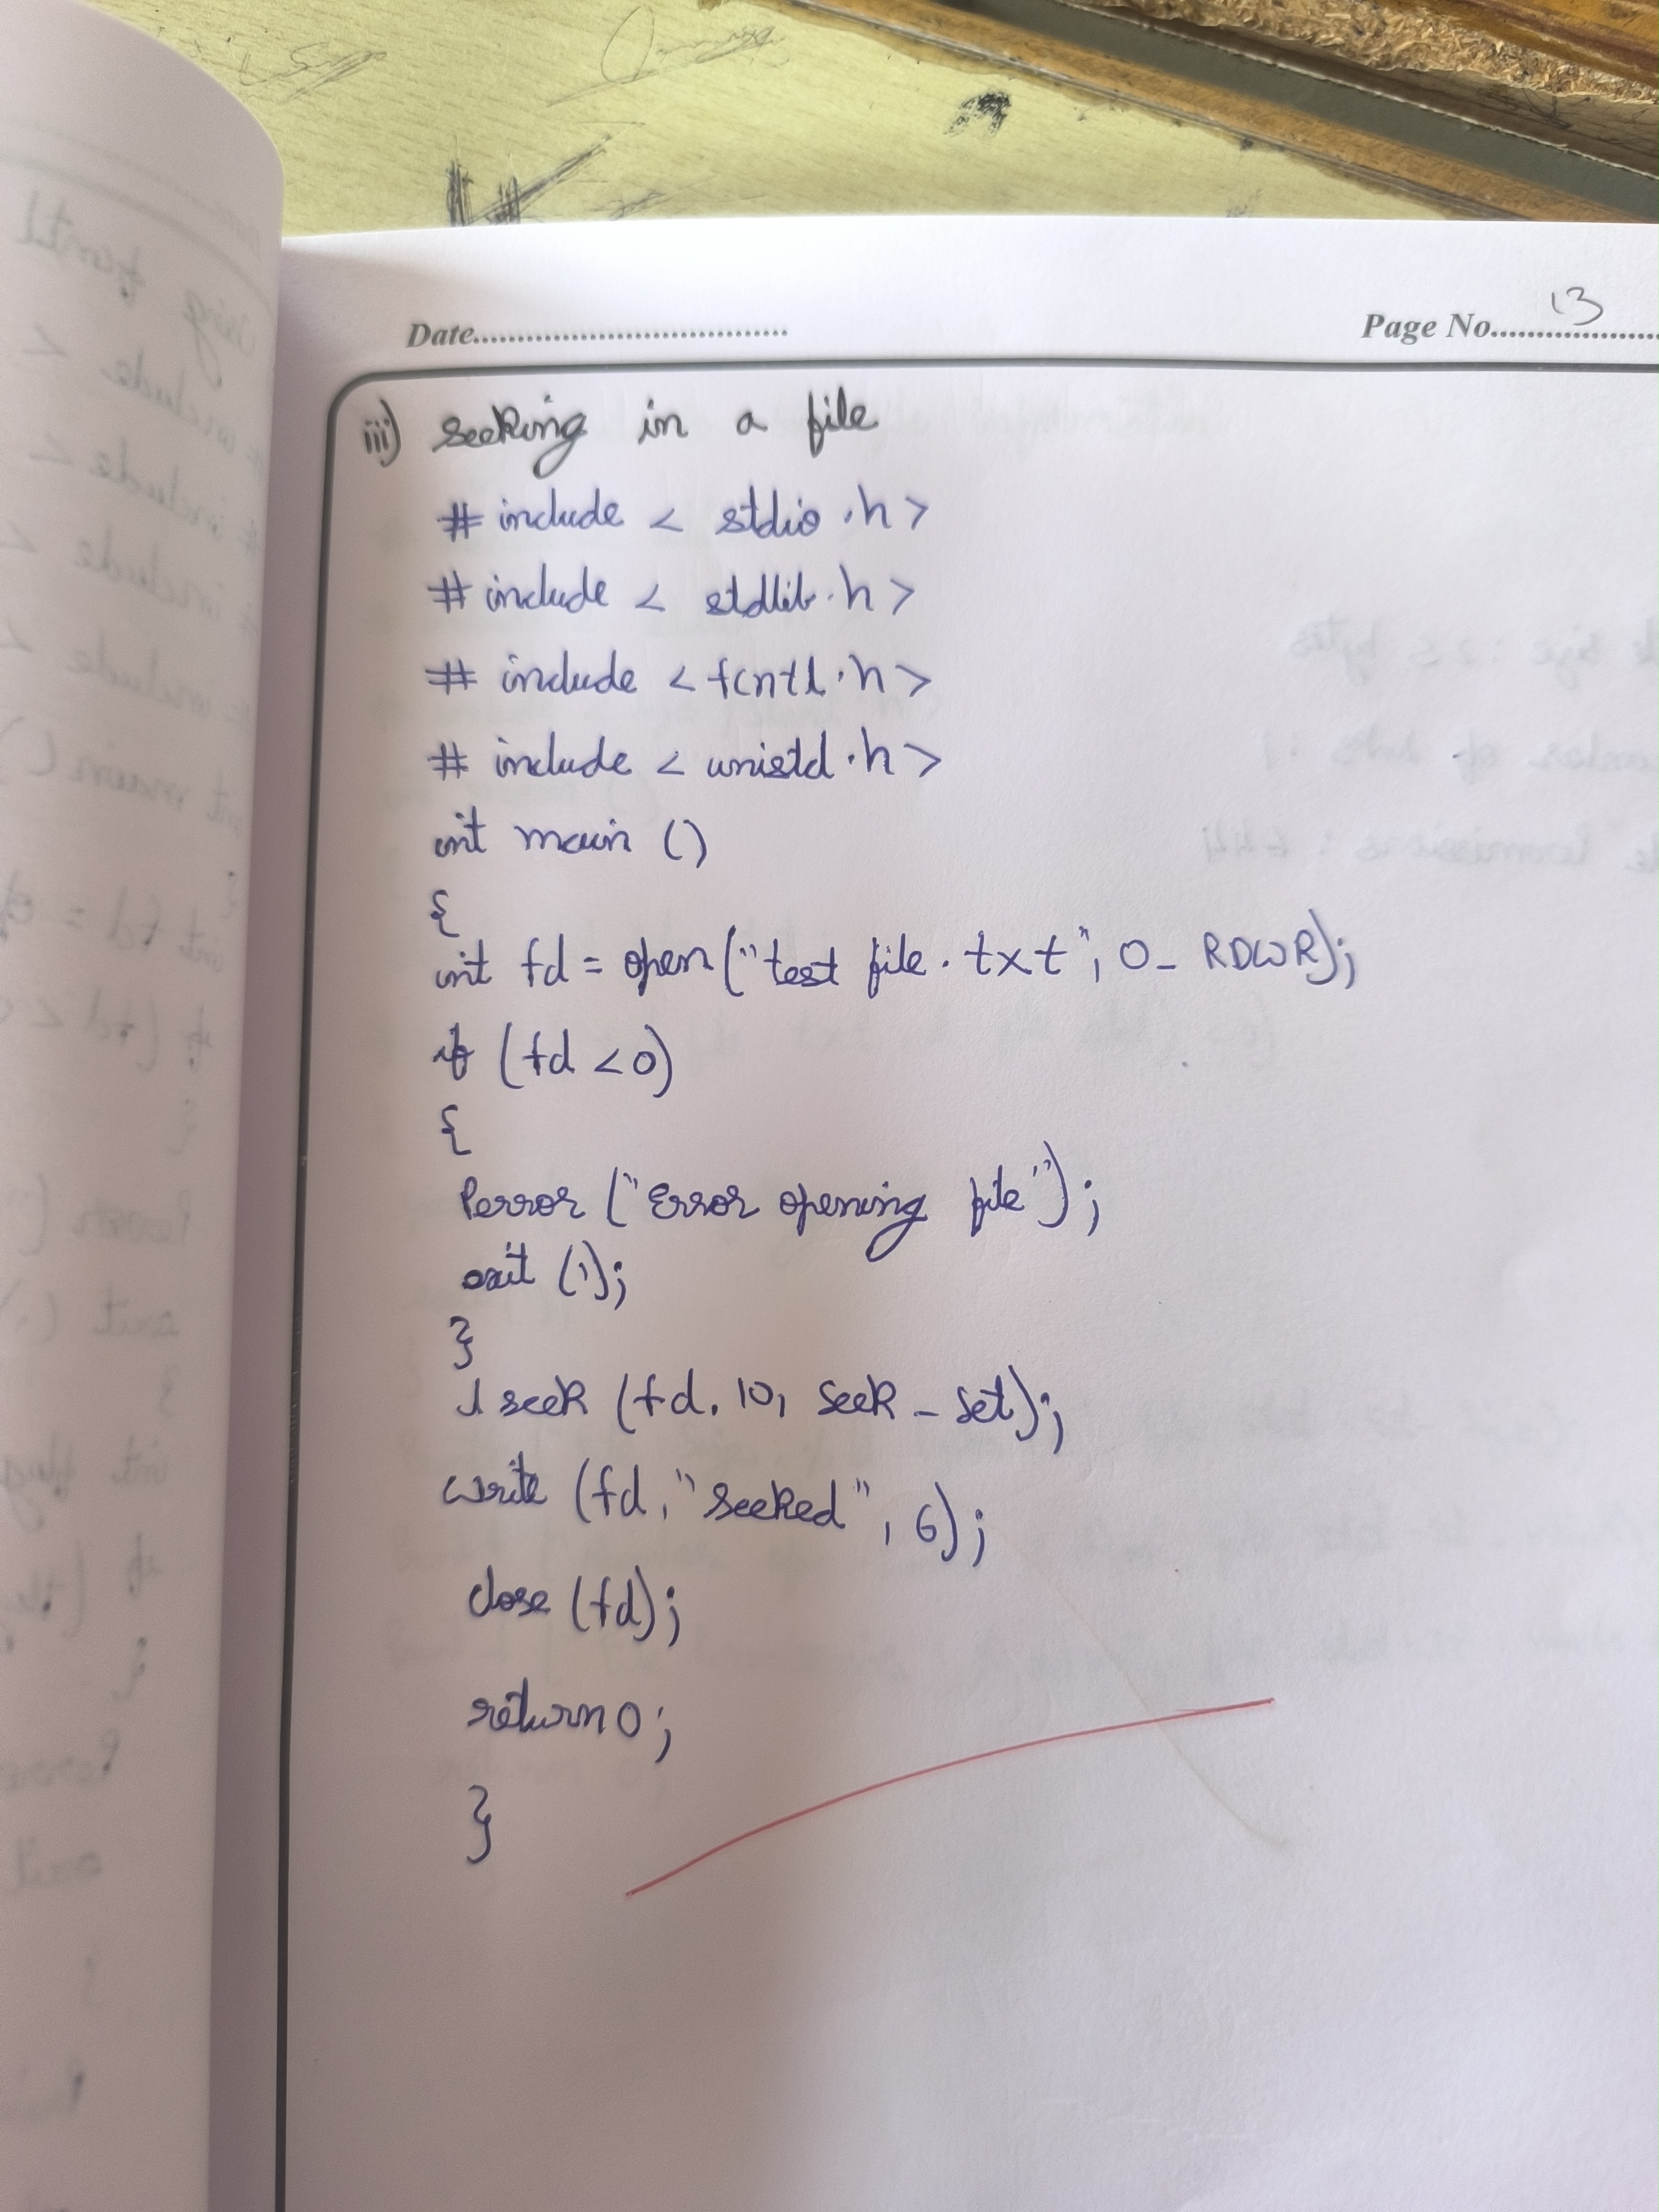 Date
Page No. 13
iii) seeking in a file
# include < stdio.h>
# include < stdlib.h>
# include <fcntl.h>
# include < unistd.h>
int main ()
{
int fd = open("test file.txt", O_RDWR);
if (fd <0)
{
Perror ("Error opening file");
exit (1);
}
lseek (fd, 10, seek_set);
write (fd, "seeked", 6);
close (fd);
return 0;
}